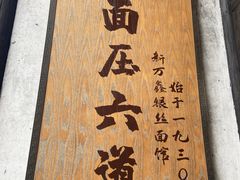 面压六道
始于一九三〇
新万鑫银丝面馆